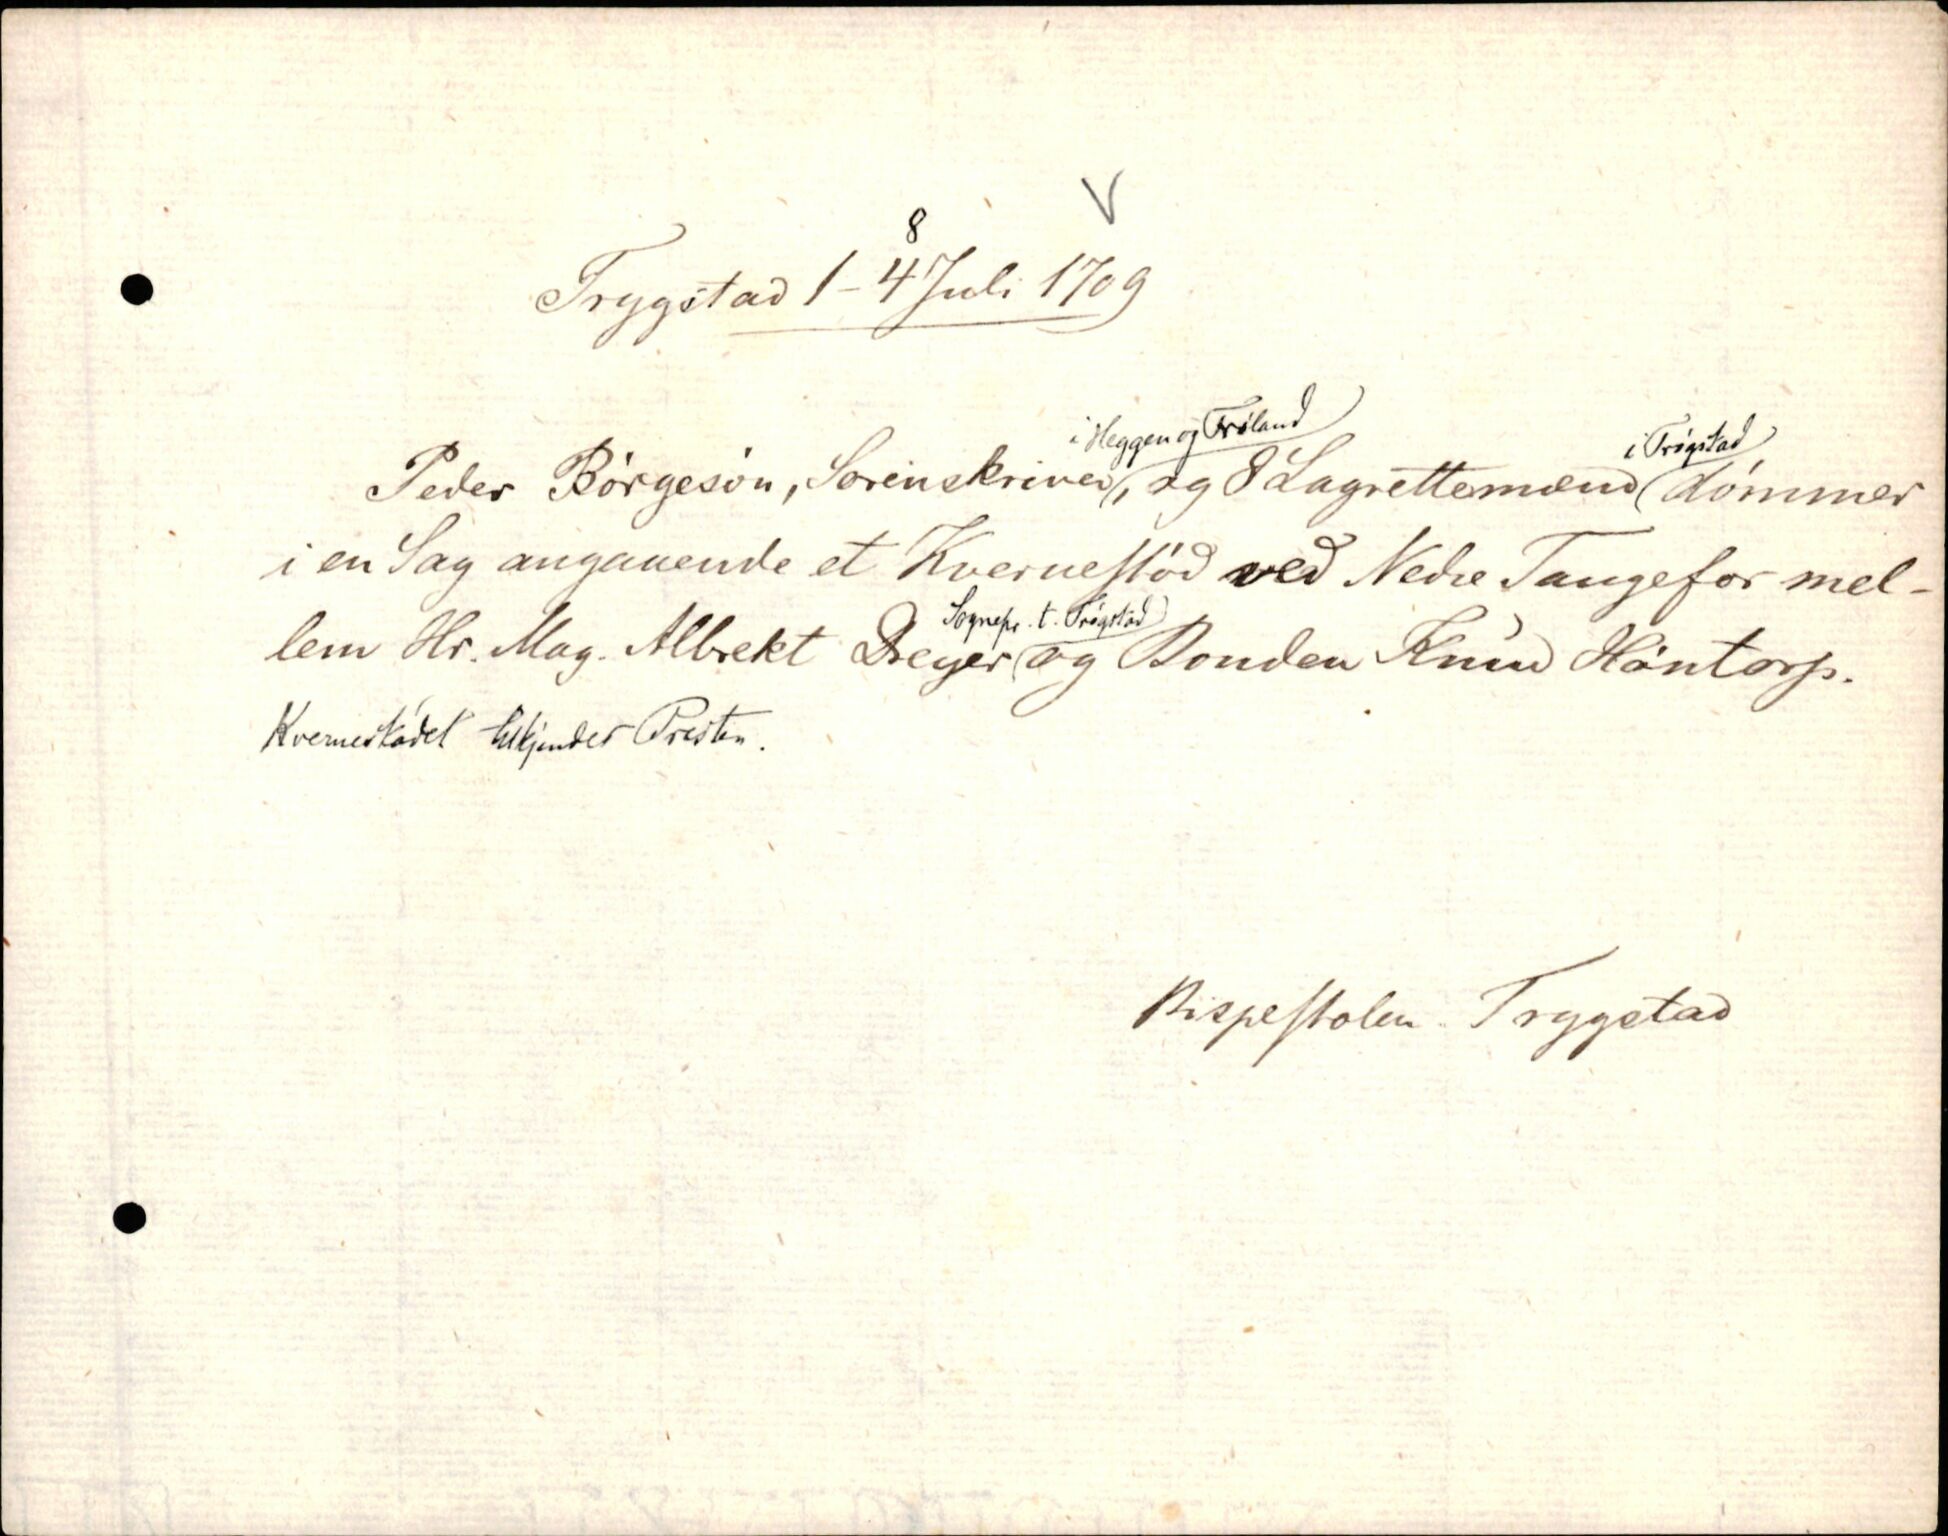 V
8
Trygstad 1-4 Juli 1709
i Heggen og Frøland
i Trøgstad
Peder Börgesön, Sorenskriver, og 8 Lagrettemænd dömmer
i en Sag angaaende et Kvernestöd ved Nedre Tangefos mel-
Sognepr. t. Trøgstad
lem Hr. Mag. Albrekt Dreyer og Bonden Knud Höntorp.
Kvernestødet tilkjendes Presten.
Bispestolen - Trygstad